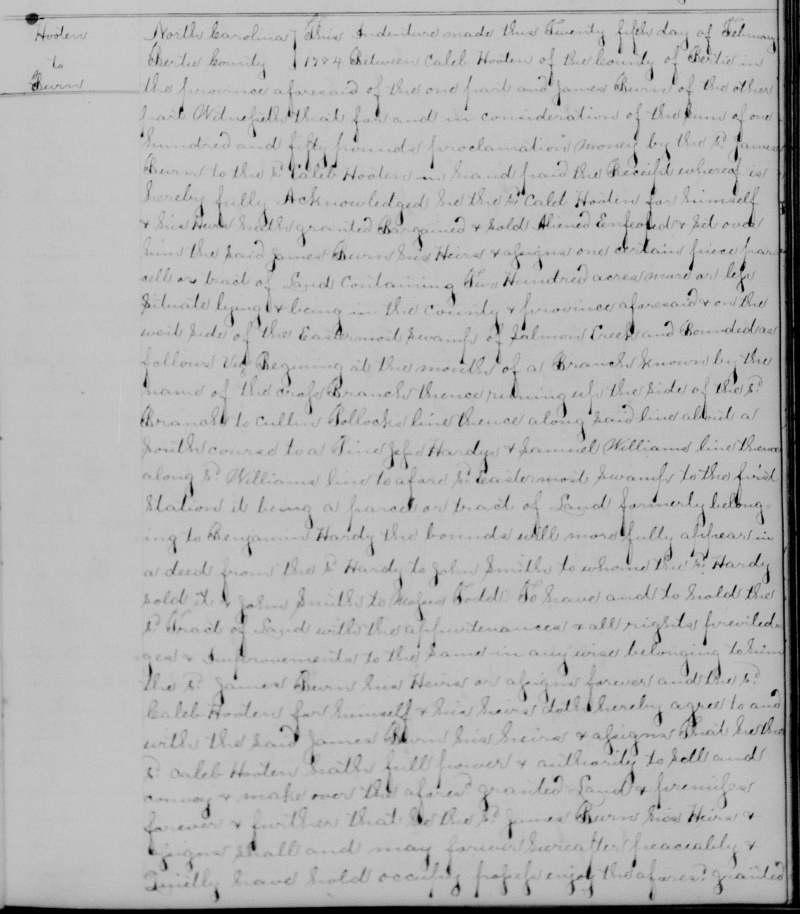 Hooten
to
Burn
North Carolina } This Indenture made this Twenty fifth day of February
Bertie County } 1774 Between Caleb Hooten of the County of Bertie in
the province aforesaid of the one part and James Burn of the other
part Witnesseth that for and in consideration of the sum of one
hundred and fifty pounds proclamation money by the sd James
Burn to the sd Caleb Hooten in hand paid the Receipt whereof is
hereby fully Acknowledged he the sd Caleb Hooten for himself
& his Heirs hath granted Bargained & sold Aliened Enfeofed & Set over
him the said James Burn his Heirs & assigns one certain piece par
cell or tract of Land Containing Two Hundred acres more or less
Situate lying & being in the County & province aforesaid & on the
west side of the Eastermost Swamp of Salmon Creek and Bounded as
follows viz Begining at the mouth of a Branch known by the
name of the cross Branch thence runing up the side of the sd
Branch to Cullin Pollocks line thence along said line about a
South course to a Pine Hardys & Samuel Williams line thence
along sd Williams line to afore sd Eastermost Swamp to the first
Station it being a parcel or tract of Land formerly belong-
ing to Benjamin Hardy the bounds will more fully appear in
a deed from the sd Hardy to John Smith to whome the sd Hardy
sold it & John Smith to Todd To have and to hold the
sd Tract of Land with the appurtenances & all rights previled-
ges & Improvements to the same in any wise belonging to him
the sd James Burn his Heirs or assigns forever and the sd
Caleb Hooten for himself & his heirs doth hereby agree to and
with the said James Burn his heirs & assigns That he the
sd Caleb Hooten hath full power & authority to sell and
convey & make over the aforesd granted Land & premises
forever & further that he the sd James Burn his Heirs &
assigns shall and may forever hereafter peaceably &
Quietly have hold occupy posses enjoy the aforesd granted